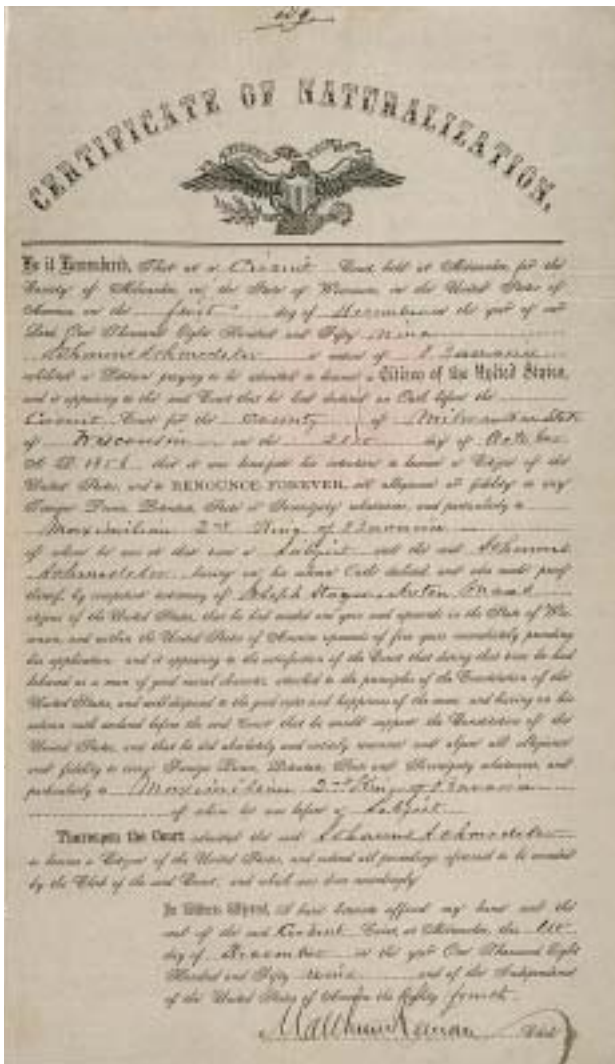 CERTIFICATE OF NATURALIZATION.
Be it Remembered, That at a Circuit Court, held at Milwaukee, for the
County of Milwaukee in the State of Wisconsin, in the United States of
America on the first day of December in the year of our
Lord One Thousand Eight Hundred and Fifty nine
a native of Bavaria
exhibited a Petition praying to be admitted to become a Citizen of the United States,
and it appearing to the said Court that he had declared on Oath before the
Circuit Court for the County of Milwaukee State
of Wisconsin on the 21st day of October
A. D. 185 that it was bona fide his intention to become a Citizen of the
United States, and to RENOUNCE FOREVER, all allegiance and fidelity to any
Foreign Prince, Potentate, State or Sovereignty whatsoever, and particularly to
Maximilian 2nd King of Bavaria
of whom he was at that time a Subject and the said
having on his solemn Oath declared, and also made proof
thereof, by competent testimony of Anton
citizens of the United States, that he had resided one year and upwards in the State of Wis-
consin, and within the United States of America upwards of five years immediately preceding
his application and it appearing to the satisfaction of the Court that during that time he had
behaved as a man of good moral character, attached to the principles of the Constitution of the
United States, and well disposed to the good order and happiness of the same and having on his
solemn oath declared before the said Court that he would support the Constitution of the
United States, and that he did absolutely and entirely renounce and abjure all allegiance
and fidelity to every Foreign Prince, Potentate, State and Sovereignty whatsoever, and
particularly to Maximilian 2nd King of Bavaria
of whom he was before a Subject
Thereupon the Court admitted the said
to become a Citizen of the United States, and ordered all proceedings aforesaid to be recorded
by the Clerk of the said Court, and which was done accordingly
In Witness Whereof, I have hereunto affixed my hand and the
seal of the said Circuit Court, at Milwaukee, this 1st
day of December in the year One Thousand Eight
Hundred and Fifty nine and of the Independence
of the United States of America the Eighty fourth
Matthew Keenan Clerk